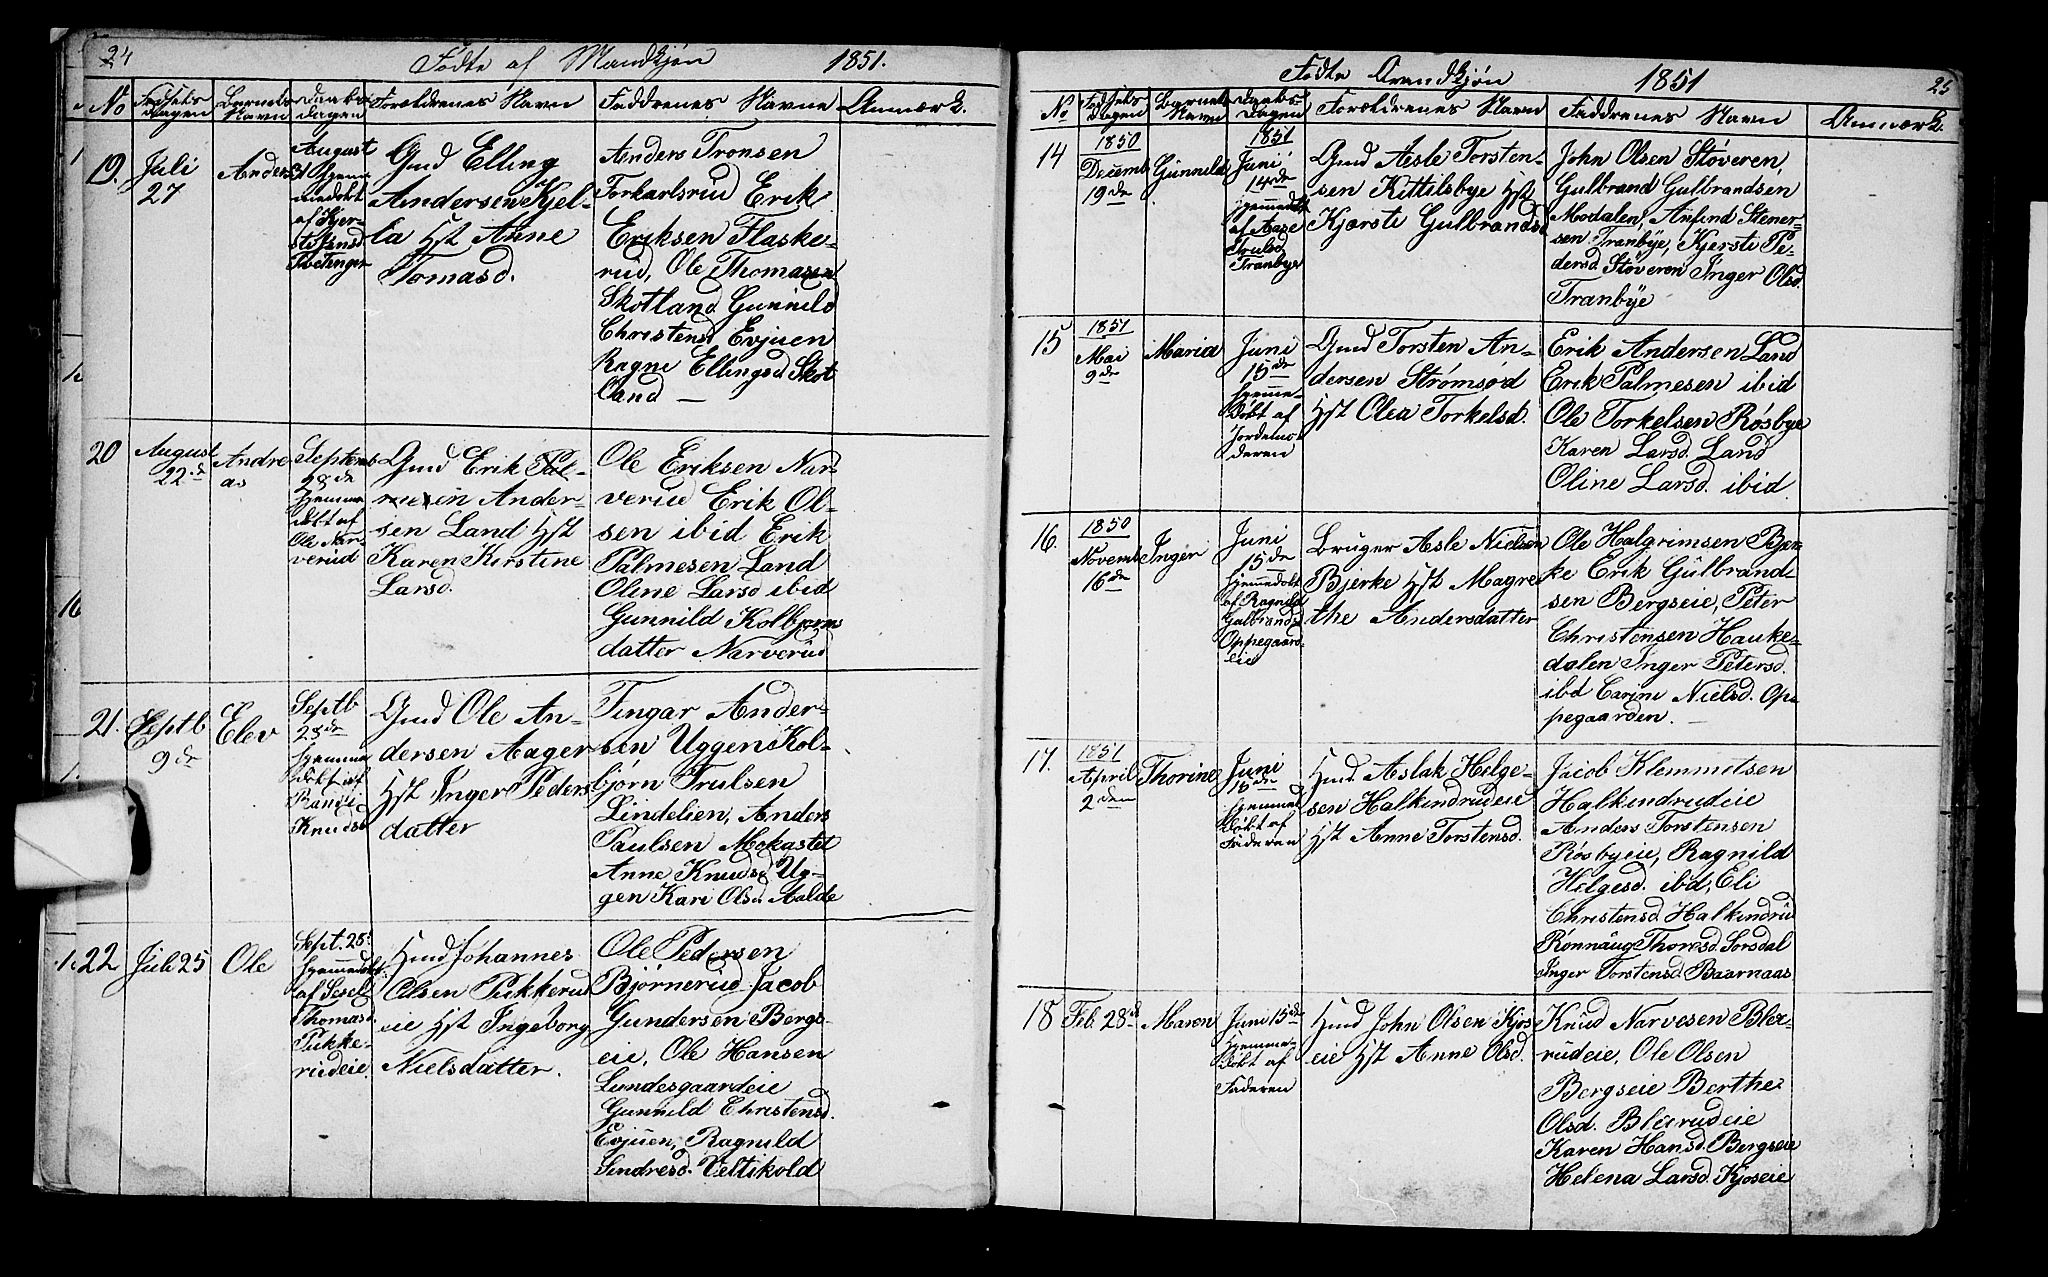 24
Fødte af Mandkjøn 1851.
No Fødsels dagen Barnets Navn Daabs dagen Forældrenes Navn Faddrenes Navne Anmærk.
19. Juli 27 Anders
August 31 Hjemmedøbt af
Gmd Elling
Andersen Kjel-
la Hst Anne
Tomasd.
Anders Tronsen
Torkarlsrud Erik
Eriksen Flaske-
rud, Ole Thomasen
Skotland Gunnild
Christensd Evjuen
Ragne Ellingsd Skot
land —
20 August 22de Andre-
as
Septemb
28de
Hjemme
døbt af
Ole Nar-
verud
Gmd Erik Pal-
mesen Ander-
sen Land Hst
Karen Kirstine
Larsd.
Ole Eriksen Nar-
verud Erik Ol-
sen ibid Erik
Palmesen Land
Oline Larsd ibid
Gunnild Kolbjørns
datter Narverud
21. Septb 9de Elev
Septb
28de
Hjemme
døbt af
Randi
Knudsd
Gmd Ole An-
dersen Aager
Hst Inger Peders
datter
Tingar Ander-
sen Uggen Kol-
bjørn Trulsen
Lindelien, Anders
Paulsen Mokastet
Anne Knudsd Ug-
gen Kari Olsd Aalde
22 Juli 25 Ole
Sept. 28
Hjemmedøbt
af Sesel
Thomasd.
Pukke-
rudeie.
Hmd Johannes
Olsen Pukkerud
eie Hst Ingeborg
Nielsdatter.
Ole Pedersen
Bjørnerud Jacob
Gundersen Bergs-
eie, Ole Hansen
Lundesgaardeie
Gunnild Christensd.
Evjuen, Ragnild
Sindresd. Veltikold
Fødte Qvendkjøn 1851 25
No Fødsels dagen Barnets Navn Daabs- dagen Forældrenes Navn Faddrenes Navn Anmærk.
14 1850
Decemb
19de
Gunnild
1851
Juni
14de
Hjemmedøbt
af Aase
Trulsd
Tranbye
Gmd Asle Torsten-
sen Kittilsbye Hst
Kjersti Gulbrandsd
John Olsen Støveren,
Gulbrand Gulbrandsen
Modalen, Anfind Stener-
sen Tranbye, Kjersti Pe-
dersd Støveren Inger Olsd.
Tranbye
15 1851
Mai
9de
Maria
Juni
15de
Hjemme-
døbt af
Jordemo-
deren
Gmd Torsten An-
dersen Strømsød
Hst Olea Torkelsd.
Erik Andersen Land
Erik Palmesen ibid
Ole Torkelsen Røsbye
Karen Larsd. Land
Oline Larsd. ibid.
16. 1850
Novemb
16de
Inger
Juni
15de
Hjemmedøbt
af Ragnild
Gulbrandsd
Oppegaard-
eie
Bruger Asle Nielsen
Bjerke Hst Magre-
the Andersdatter
Ole Halgrimsen Bjer-
ke Erik Gulbrand-
sen Bergseie, Peter
Christensen Hauke-
dalen Inger Petersd.
ibd Carine Nielsd. Op-
pegaarden. —
17. 1851
April
2den
Thorine
Juni
15de
Hjemme
døbt af
Faderen
Hmd. Aslak Helge-
sen Halkindrudeie
Hst Anne Torstensd.
Jacob Klemmetsen
Halkindrudeie
Anders Torstensen
Røsbyeie, Ragnild
Helgesd. ibd, Eli
Christensd. Halkindrud
Rønnaug Thoresd. Sorsdal
Inger Torstensd Baarnaas
18 Feb. 28de Maren
Juni 15de
Hjemme-
døbt af
Faderen
Hmd John Olsen Kjos
eie Hst Anne Olsd.
Knud Narvesen Bler-
rudeie, Ole Olsen
Bergseie Berthe
Olsd. Blerrudeie
Karen Hansd. Bergseie
Helena Larsd. Kjoseie